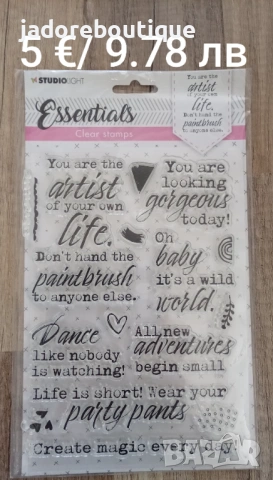 jadoreboutique
5 €/ 9.78 лв
STUDIOLIGHT
Essentials
Clear stamps
You are the
artist
of your own
life.
Don't hand the
paintbrush
to anyone else.
You are the
artist
of your own
life.
Don't hand the
paintbrush
to anyone else.
You are
looking
gorgeous
today!
Oh
baby
it's a wild
world.
Dance
like nobody
is watching!
All new
adventures
begin small
Life is short! Wear your
party pants
Create magic every day!
bazar